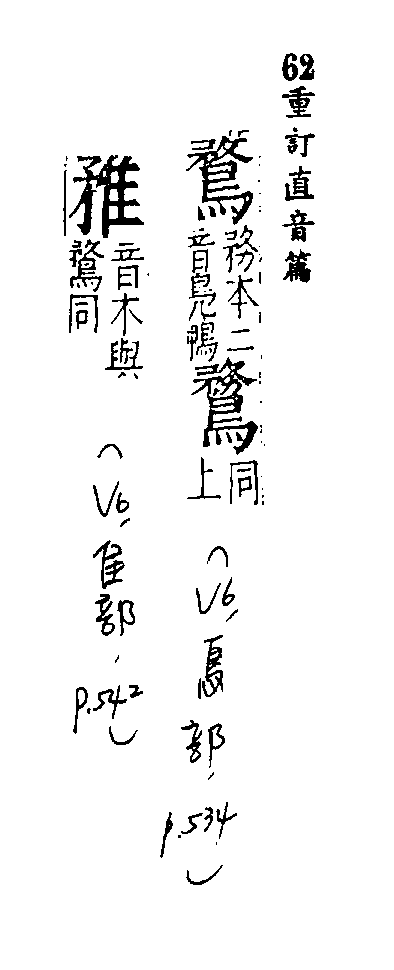 62重訂直音篇
鶩
務本二
音鳧鴨
同
上
(V6, 鳥部, p.534)
音木與
鶩同
(V6, 隹部, p.542)